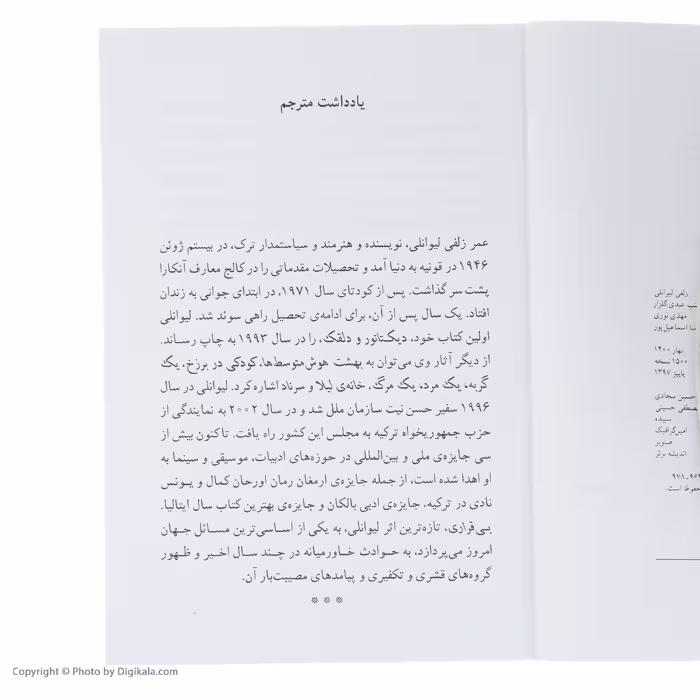 یادداشت مترجم
عمر زلفی لیوانلی، نویسنده و هنرمند و سیاستمدار ترک، در بیستم ژوئن
۱۹۴۶ در قونیه به دنیا آمد و تحصیلات مقدماتی را در کالج معارف آنکارا
پشت سر گذاشت. پس از کودتای سال ۱۹۷۱، در ابتدای جوانی به زندان
افتاد. یک سال پس از آن، برای ادامه‌ی تحصیل راهی سوئد شد. لیوانلی
اولین کتاب خود، دیکتاتور و دلقک، را در سال ۱۹۹۳ به چاپ رساند.
از دیگر آثار وی می‌توان به بهشت هوش‌متوسط‌ها، کودکی در برزخ، یک
گربه، یک مرد، یک مرگ، خانه‌ی لیلا و سرناد اشاره کرد. لیوانلی در سال
۱۹۹۶ سفیر حسن نیت سازمان ملل شد و در سال ۲۰۰۲ به نمایندگی از
حزب جمهوریخواه ترکیه به مجلس این کشور راه یافت. تاکنون بیش از
سی جایزه‌ی ملی و بین‌المللی در حوزه‌های ادبیات، موسیقی و سینما به
او اهدا شده است، از جمله جایزه‌ی ارمغان رمان اورحان کمال و یونس
نادی در ترکیه، جایزه‌ی ادبی بالکان و جایزه‌ی بهترین کتاب سال ایتالیا.
بی‌قراری، تازه‌ترین اثر لیوانلی، به یکی از اساسی‌ترین مسائل جهان
امروز می‌پردازد، به حوادث خاورمیانه در چند سال اخیر و ظهور
گروه‌های قشری و تکفیری و پیامدهای مصیبت‌بار آن.
* * *
زلفی لیوانلی
عیدی گلزار
مهدی نوری
اسماعیل‌پور
بهار ۱۴۰۰
۱۵۰۰ نسخه
پاییز ۱۳۹۷
حسین سجادی
مصطفی حسینی
سپیده
امین‌گرافیک
صنوبر
اندیشه برتر
۹۷۸-۹۶۴
است.
Copyright © Photo by Digikala.com